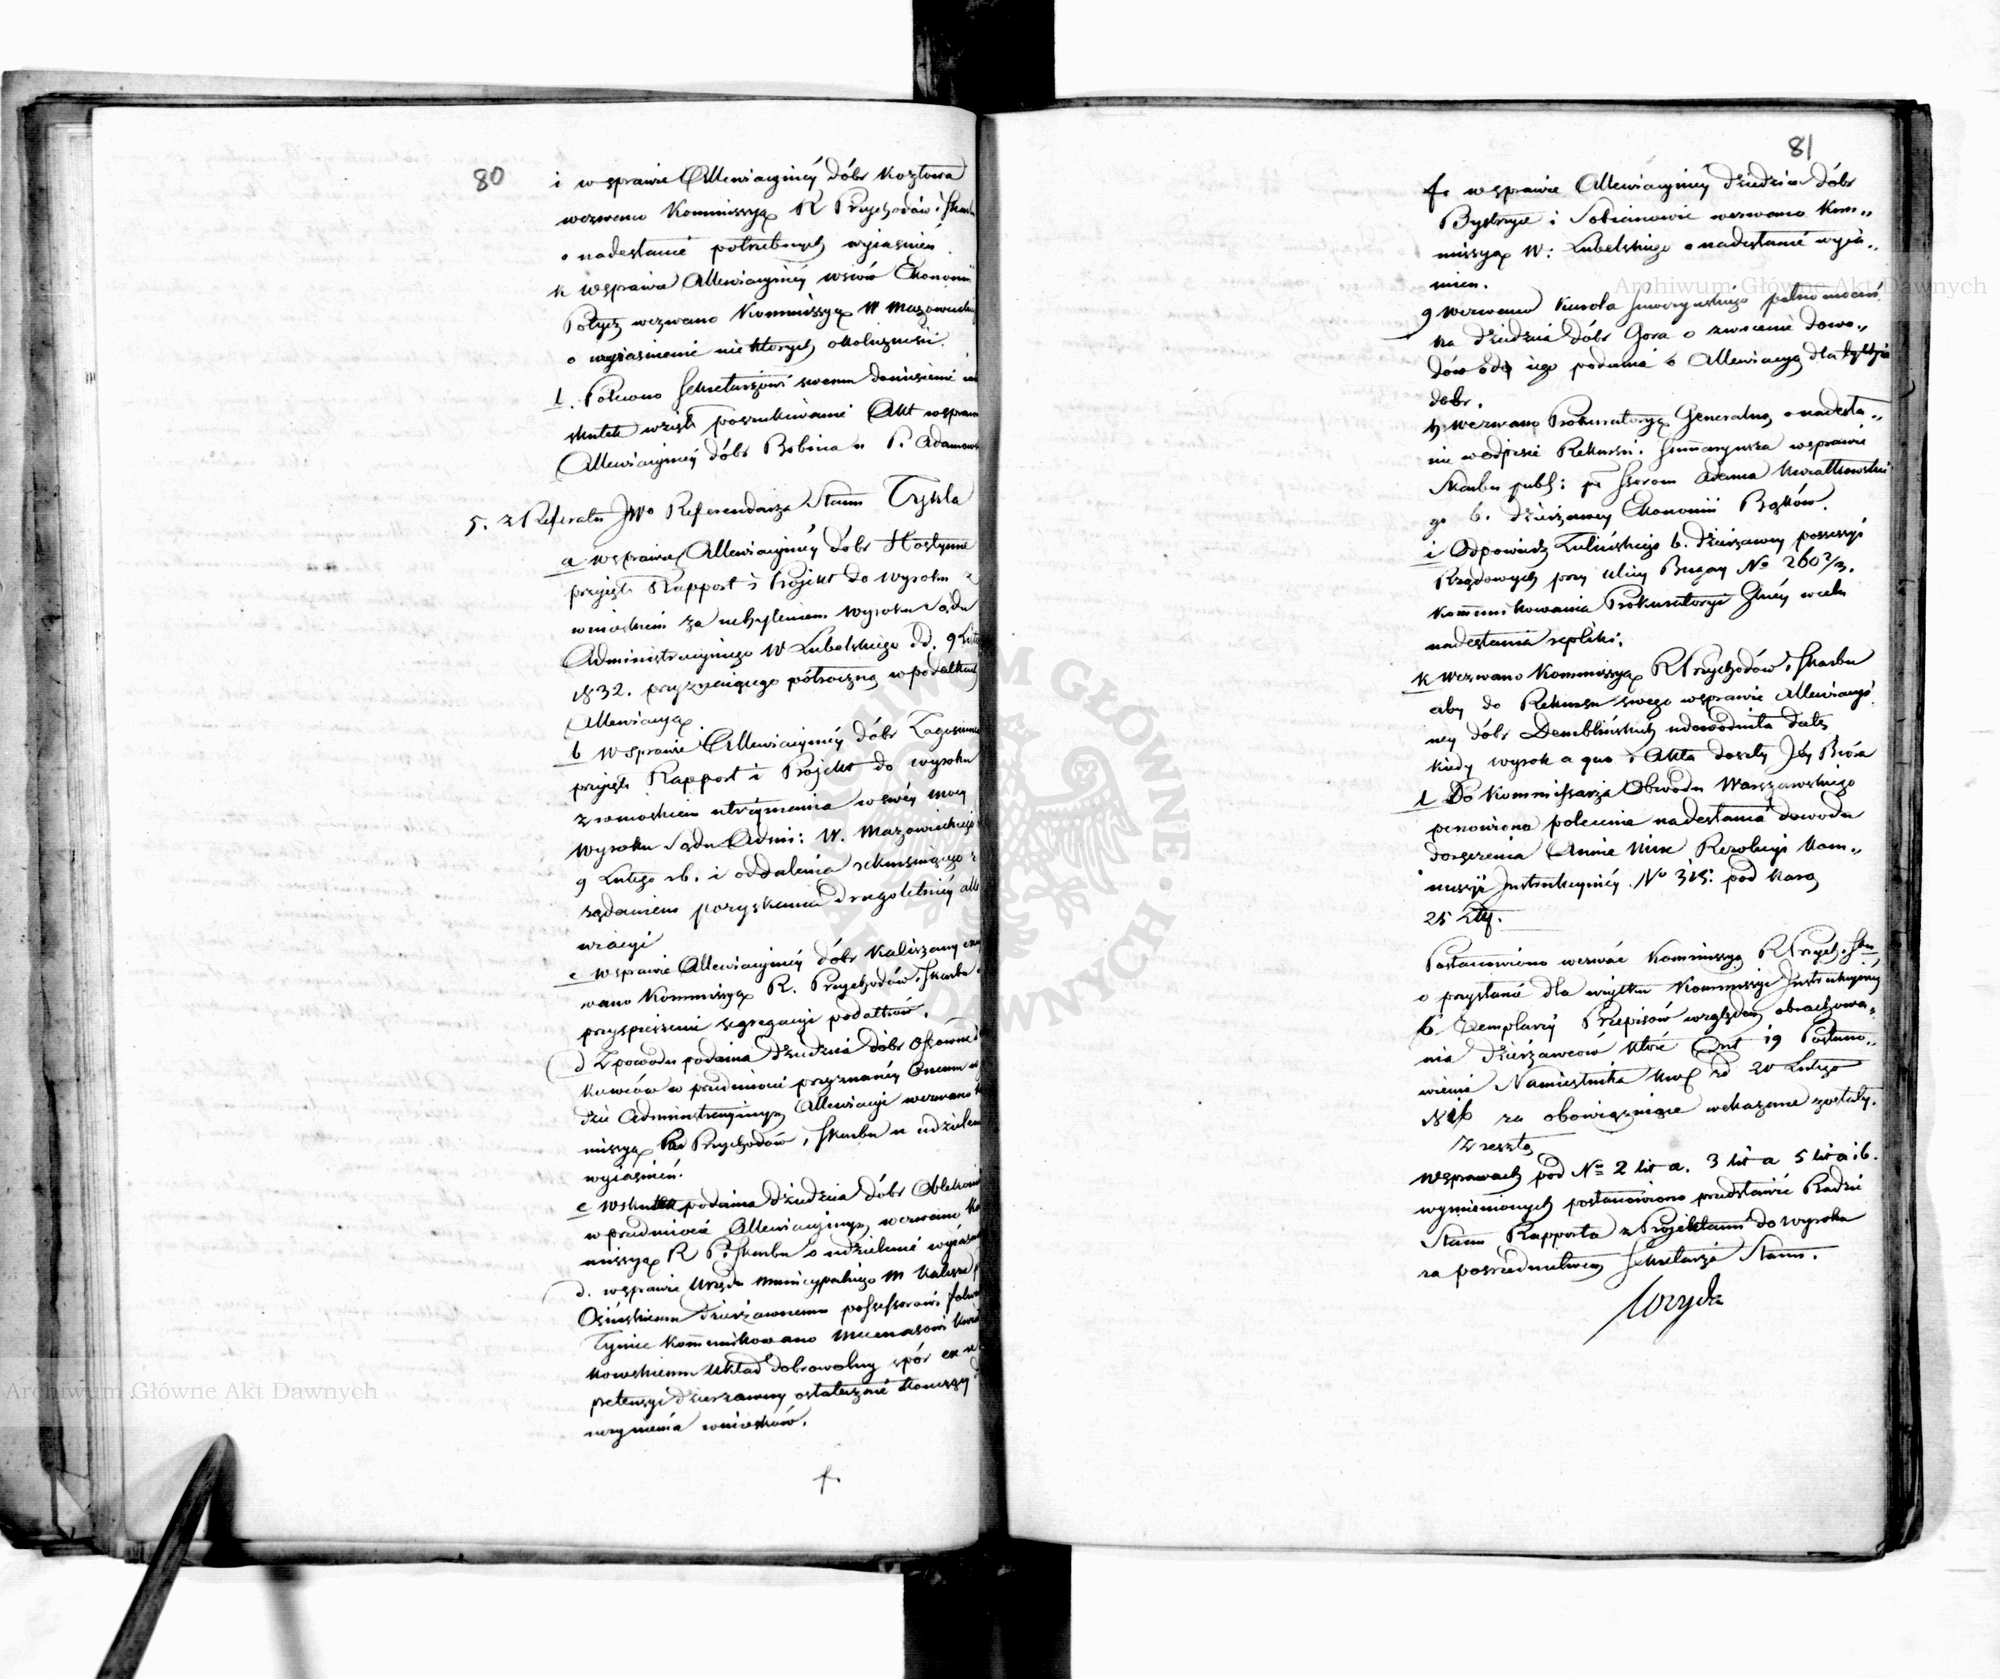 80
i w sprawie Allewiacyinéy dóbr Kozłowa
wezwano Kommissyą R Przychodów i Skarbu
o nadesłanie potrzebnych wyiasnień.
k W sprawie Allewiacyinéy wsiów Ekonomii
Potycz wezwano Kommissyą W Mazowieckiego
o wyiasnienie niektorych okoliczności.
l. Polecono Sekretarzowi swemu doniesienie
skutek wzięło poszukiwanie Akt w sprawie
Allewiacyinéy dóbr Bobina u P. Adamows
5. z Referatu JWo Referendarza Stanu Tykla
a w sprawie Allewiacyinéy dóbr Hostynne
przyjęto Rapport i Projekt do wyroku z
wnioskiem za uchyleniem wyroku Sądu
Administracyinego W Lubelskiego dd. 9 Lute
1832. przyznaiącego półroczną w podatkach
Allewiacyą.
b W sprawie Allewiacyinéy dóbr
przyjęto Rapport i Projekt do wyroku
z wnioskiem utrzymania w swéy mocy
wyroku Sądu Admi: W. Mazowieckiego
9 Lutego rb. i oddalenia rekursuiącego z
żądaniem pozyskania drugoletniéy alle
wiacyi
c W sprawie Allewiacyinéy dóbr Kaliszany wez
wano Kommissyą R. Przychodów i Skarbu o
przyspieszenie segregacyi podatków.
d Z powodu podania dziedzica dóbr
w przedmiocie przyznanéy Onemu w
dzie Administracyinym Allewiacyi wezwano Ko
missyą Przychodów i Skarbu o udzielenie
wyiaśnień.
e W skutek podania dziedzica dóbr
w przedmiocie Allewiacyinym wezwano Ko
missyą R P. Skarbu o udzielenie wyiaśnień
d. w sprawie Urzędu Municypalnego M Kalisza p
Osińskiemu Dzierżawnemu possessorowi folwar
Tyniec kommunikowano Mecenasowi
kowskiemu układ dobrowolny spór ex
pretensyi dzierżawney ostatecznie kończący
uczynienia wniosków.
f.
81
f. w sprawie Allewiacyinéy dziedzica dóbr
Bystrzyce i Sobianowic wezwano Kom„
missyą W: Lubelskiego o nadesłanie wyia„
snień.
g Wezwano Karola pełnomocni
ka dziedzica dóbr Gora o zwrócenie dowo„
dów do iego podania o Allewiacyą dla tychże
dobr.
h. wezwano Prokuratoryą Generalną o nadesła„
nie w odpisie Rekursu i Summaryusza w sprawie
Skarbu publ: pko Ssorom Adama Kwiatkowskie
go b. dzierżawcy Ekonomii Bąków.
i Odpowiedź Zulińskiego b. dzierżawcy possessyi
Rządowych przy ulicy Bugay No 260 2/3.
kommunikowania Prokuratoryi Głnéy w celu
nadesłania repliki.
k Wezwano Kommissyą R Przychodów i Skarbu
aby do Rekursu swego w sprawie Allewiacyi
ney dóbr Demblińskich udowodniła datę
kiedy wyrok a quo i Akta doszły Jéy Bióra
l Do Kommissarza Obwodu Warszawskiego
ponowiono polecenie nadesłania dowodu
doręczenia Annie Rezolucyi Kom„
missyi Instrukcyinéy No 315. pod karą
25 Złp.
Postanowiono wezwać Kommissyą R Przych: i Skar
o przysłanie dla użytku Kommissyi Instrukcyinéy
6 Exemplarzy Przepisów względem obrachowa„
nia dzierżawców które Art 19 Postano„
wienia Namiestnika Król. zd 20 Lutego
1816 za obowiązuiące wskazane zostały.
Z resztą
W sprawach pod No 2 lit a. 3 lit a 5 lit a i b.
wymienionych postanowiono przedstawić Radzie
Stanu Rapporta z Projektami do wyroku
za pośrednictwem Sekretarza Stanu.